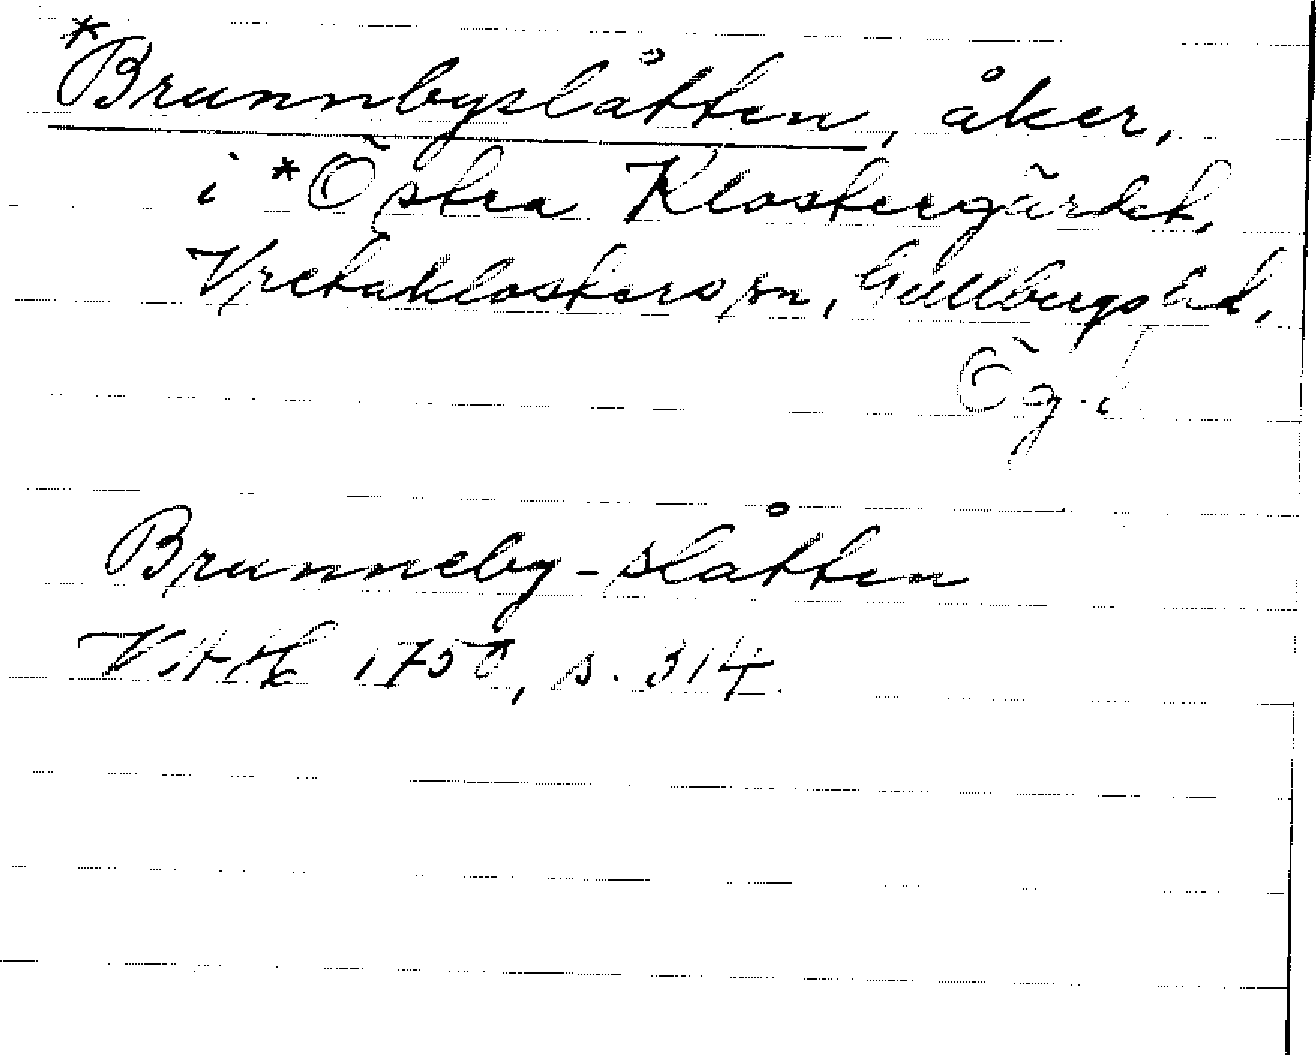 *Brunnbyslåtten, åker,
i *Östra Klostergärdet,
Vretaklosters sn, Gullbergs hd,
Ög.
Brunneby-slåtten
1750, s. 314.